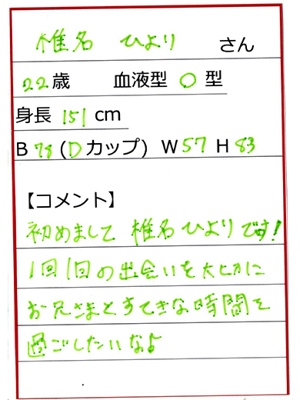 椎名 ひより さん
22歳 血液型 O 型
身長 151 cm
B 78 (Dカップ) W 57 H 83
【コメント】
初めまして 椎名ひよりです!
1回1回の出会いを大切に
お兄さまとすてきな時間を
過ごしたいなょ